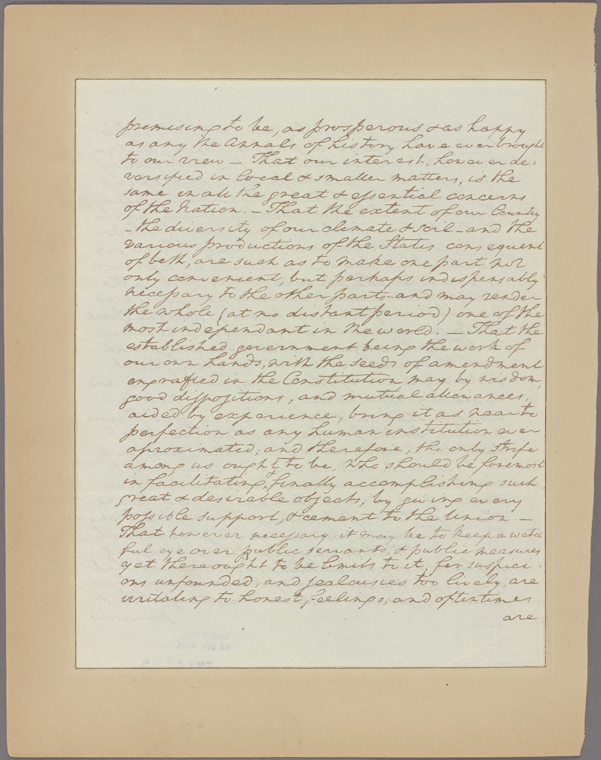 promising to be, as prosperous & as happy
as any the Annals of history have ever brought
to our view – That our interest, however de:
versified in local & smaller matters, is the
same in all the great & essential concerns
of the Nation. – That the extent of our Country
– the diversity of our climate & soil – and the
various productions of the States consequent
of both, are such as to make one part not
only convenient, but perhaps indispensably
necessary to the other part; – and may render
the whole (at no distant period) one of the
most independant in the world. – That the
established government being the work of
our own hands, with the seeds of amendment
engrafted in the Constitution, may by wisdom,
good dispositions, and mutual allowances;
aided by experience, bring it as near to
perfection as any human institution ever
aproximated; and therefore, the only strife
among us ought to be, who should be foremost
in facilitating & finally accomplishing such
great & desirable objects; by giving every
possible support, & cement to the Union. –
That however necessary it may be to keep a watch
ful eye over public servants, & public measures,
yet there ought to be limits to it; for suspici:
ons unfounded, and jealousies too lively, are
irritating to honest feelings; and oftentimes
are